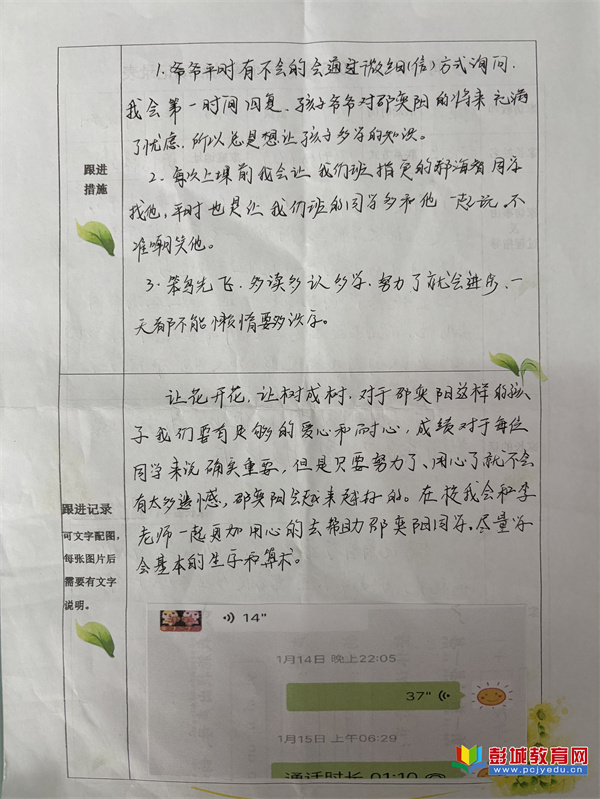 1. 爷爷平时有不会的会通过微细(信)方式询问.
我会第一时间回复、孩子爷爷对邵奕阳的将来充满
了忧虑.所以总是想让孩子多学的知识。
跟进
措施
2. 每次上课前我会让我们班指定的郝海智同学
找他,平时也是让我们班的同学多和他一起玩,不
准嘲笑他。
3. 笨鸟先飞.多读多认多学.努力了就会进步、一
天都不能懒惰要多识字。
让花开花,让树成树.对于邵奕阳这样的孩
子我们要有足够的爱心和耐心,成绩对于每位
同学来说确实重要,但是只要努力了、用心了就不会
有太多遗憾,邵奕阳会越来越好的。在校我会和李
老师一起更加用心的去帮助邵奕阳同学.尽量学
会基本的生字和算术。
跟进记录
可文字配图,
每张图片后
需要有文字
说明。
14"
1月14日 晚上22:05
37"
1月15日 上午06:29
通话时长 01:10
彭城教育网
www.pcjyedu.cn